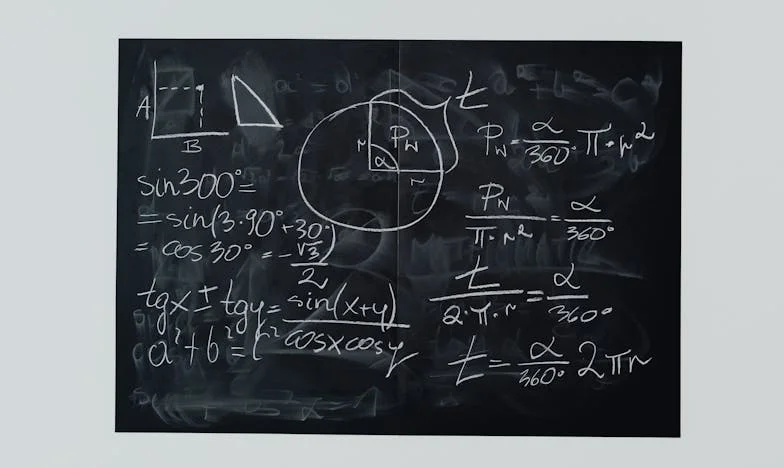 A
B
sin300°=
=sin(3·90°+30°)
= cos30° = -√3/2
tgx ± tgy = sin(x+y)/cosxcosy
a²+b²=c²
t
P_w
r
α
r
P_w = α/360° · π·r²
P_w/π·r² = α/360°
t/2·π·r = α/360°
t = α/360° 2πr